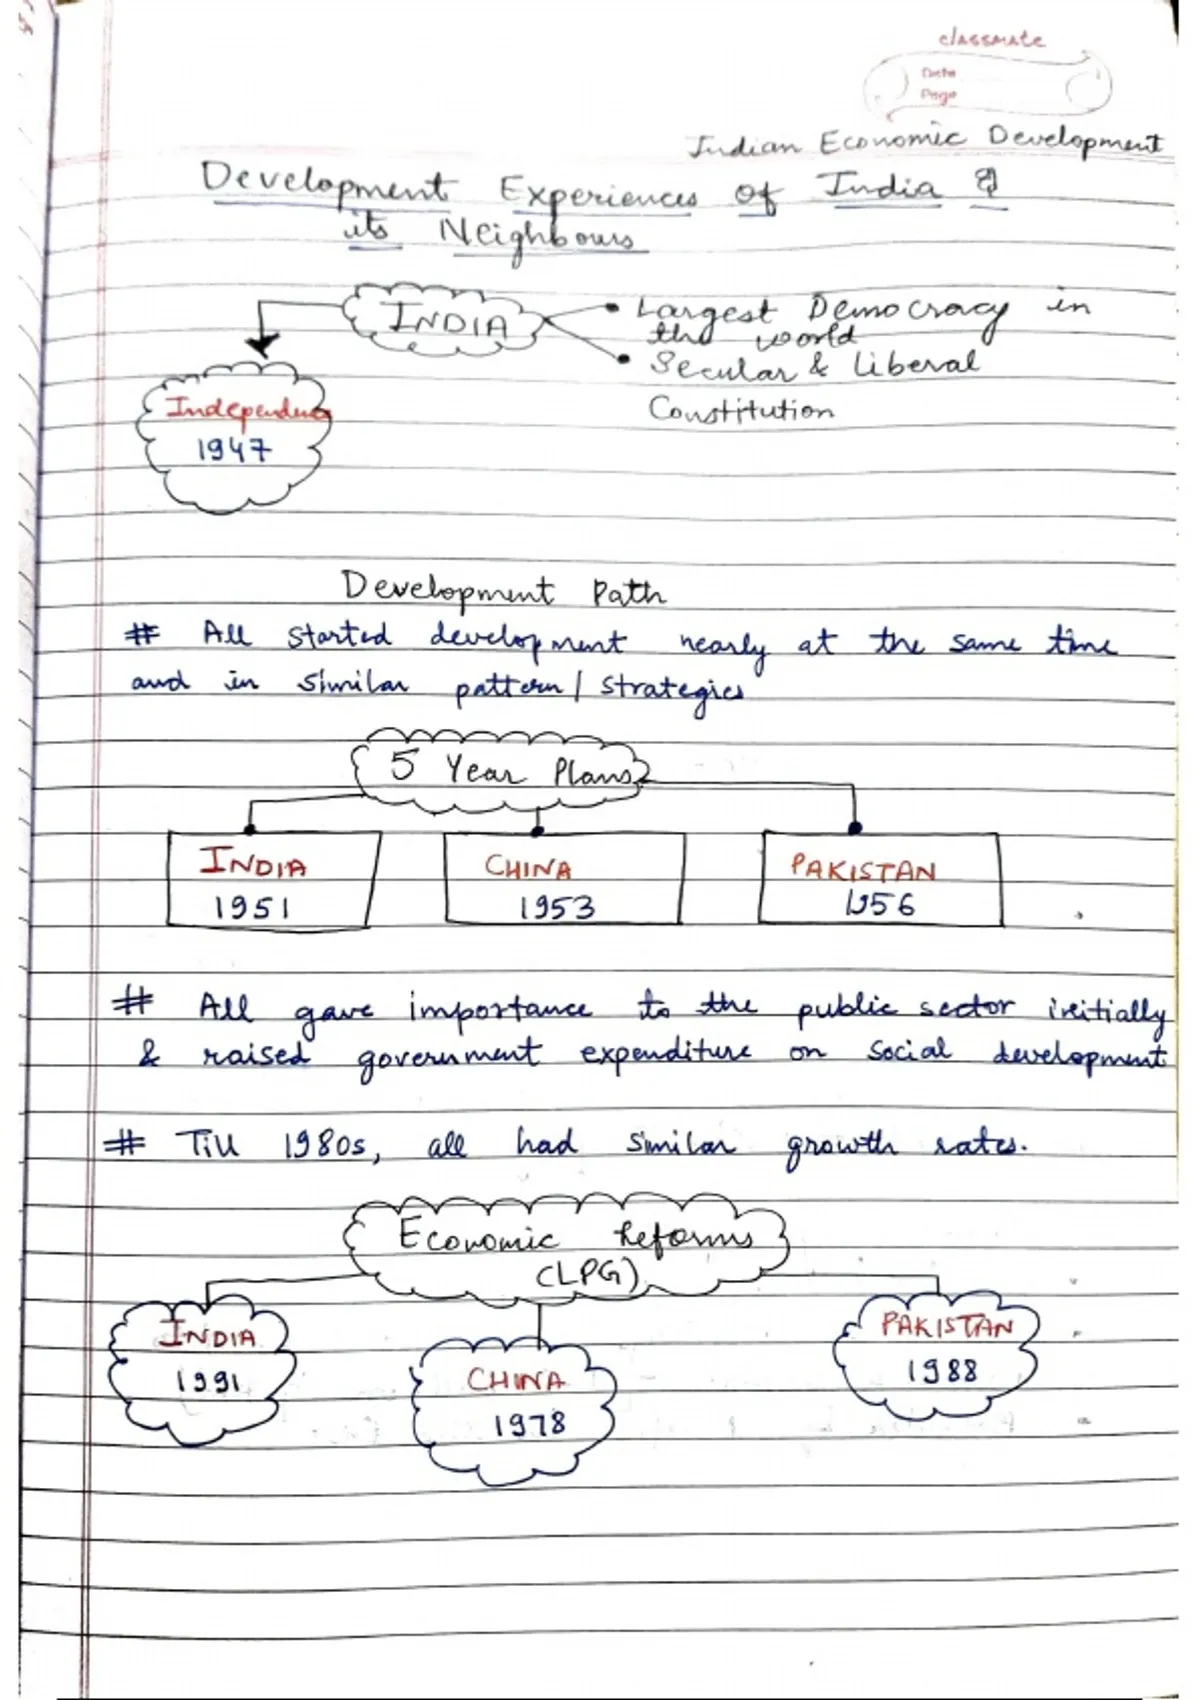 classmate
Date
Page
Indian Economic Development
Development Experiences of India &
its Neighbours
INDIA
• Largest Democracy in
the world
• Secular & Liberal
Constitution
Independence
1947
Development Path
# All started development nearly at the same time
and in similar pattern / strategies
5 Year Plans
INDIA
1951
CHINA
1953
PAKISTAN
1956
# All gave importance to the public sector initially
& raised government expenditure on social development
# Till 1980s, all had similar growth rates.
Economic Reforms
(LPG)
INDIA
1991
CHINA
1978
PAKISTAN
1988